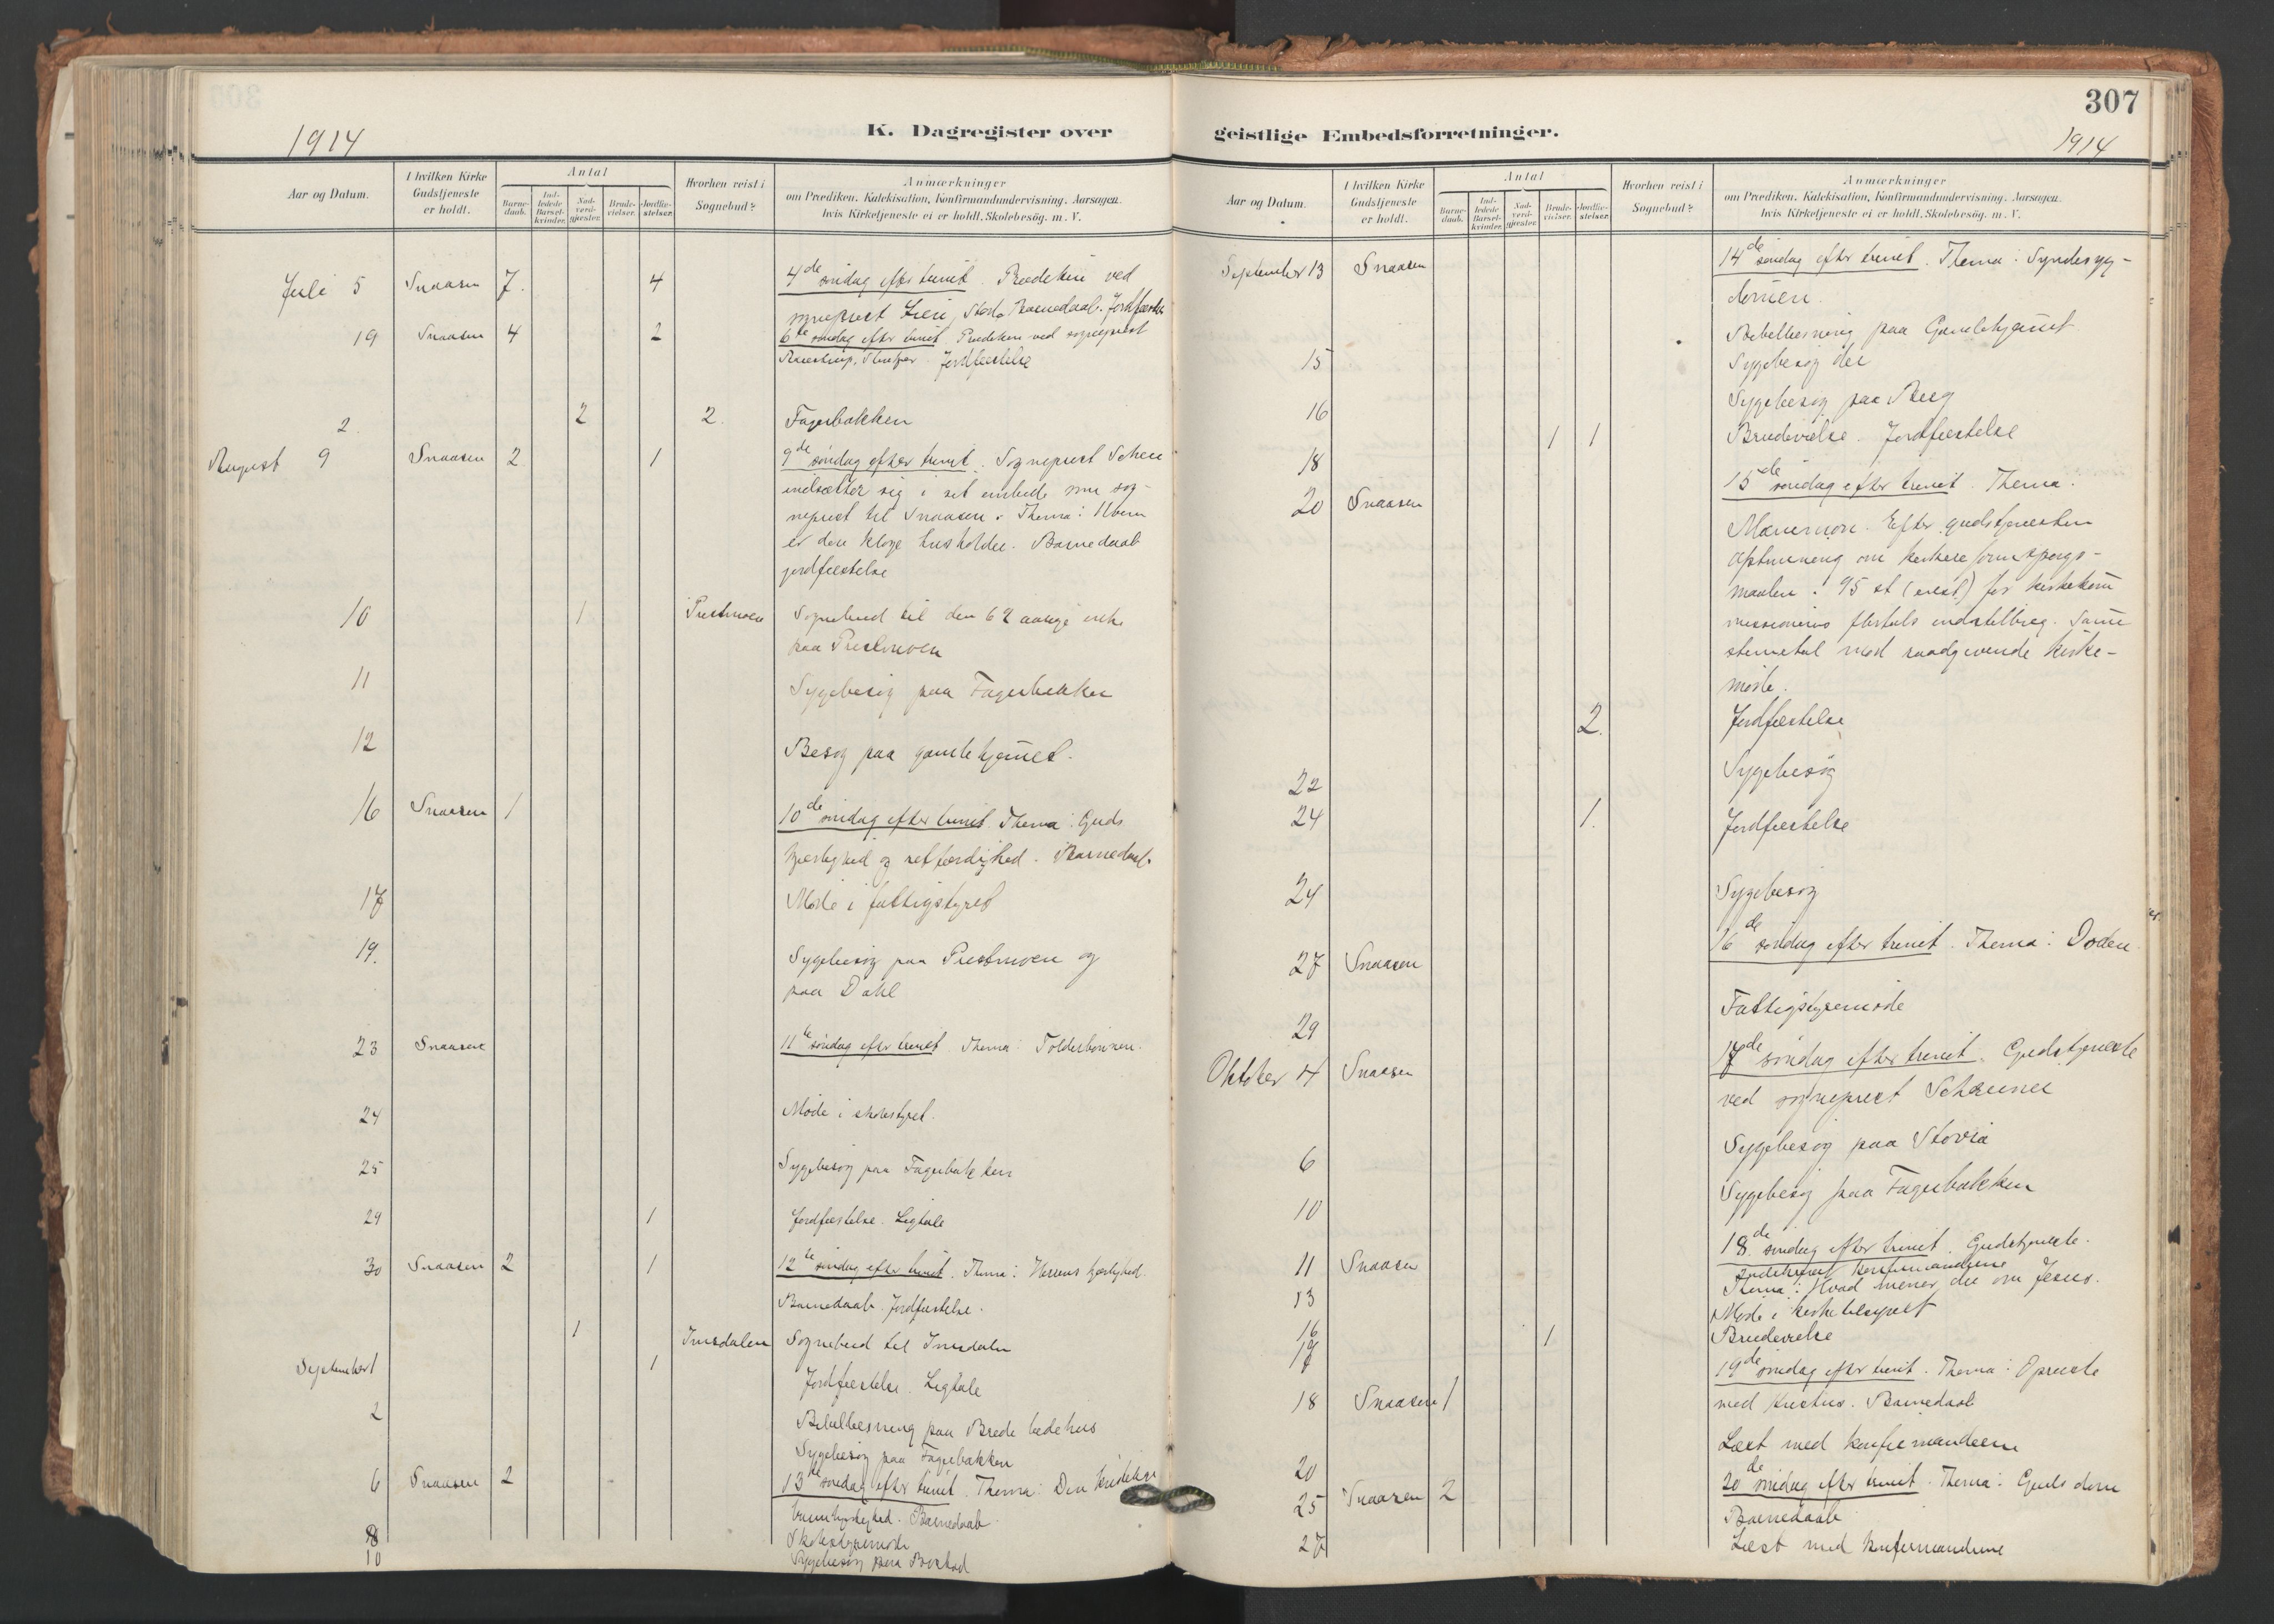 307
K. Dagregister over
geistlige Embedsforretninger.
1914
1914
Aar og Datum.
I hvilken Kirke
Gudstjeneste
er holdt.
Antal
Barne-
daab.
Ind-
ledede
Barsel-
kvinder.
Nad-
verd-
gjester.
Brude-
vielser.
Jordfæ-
stelser.
Hvorhen reist i
Sognebud?
Anmærkninger
om Prædiken, Katekisation, Konfirmandundervisning, Aarsagen,
hvis Kirketjeneste ei er holdt, Skolebesøg, m. V.
Juli 5 Snaasen 7. 4 4de søndag efter trinit. Prædeken ved
sogneprest Barnedaab. Jordfæstelse
19 Snaasen 4 2 6te søndag efter trinit. Prædeken ved sogneprest
Jordfæstelse
2. 2 2. Fagerbakken
August 9 Snaasen 2 1 9de søndag efter trinit. Sogneprest
indsætter sig i sit embede som sog-
neprest til Snaasen. Thema: Hvem
er den kloge husholder. Barnedaab
jordfæstelse
10 1 Prestmoen Sognebud til den 62 aarige enke
paa Prestmoen
11 Sygebesøg paa Fagerbakken
12 Besøg paa gamlehjemet.
16 Snaasen 1 10de søndag efter trinit. Thema: Guds
kjærlighed og retfærdighed. Barnedaab.
17 Møde i fattigstyret
19. Sygebesøg paa Prestmoen og
paa Dahl
23 Snaasen 11te søndag efter trinit. Thema: Tolderbønnen.
24 Møde i skolestyret.
25 Sygebesøg paa Fagerbakken
29 1 Jordfæstelse. Ligtale
30 Snaasen 2 1 12te søndag efter trinit. Thema: Herrens kjærlighed.
Barnedaab. Jordfæstelse.
1 Imsdalen Sognebud til Imsdalen
September 1 1 Jordfæstelse. Ligtale
2 Bibellæsning paa Brede bedehus
Sygebesøg paa Fagerbakken
6 Snaasen 2 13de søndag efter trinit. Thema: Den kristelige
barmhjertighed. Barnedaab.
8 Skolestyremøde
10 Sygebesøg paa
Aar og Datum.
I hvilken Kirke
Gudstjeneste
er holdt.
Antal
Barne-
daab.
Ind-
ledede
Barsel-
kvinder.
Nad-
verd-
gjester.
Brude-
vielser.
Jordfæ-
stelser.
Hvorhen reist i
Sognebud?
Anmærkninger
om Prædiken, Katekisation, Konfirmandundervisning, Aarsagen,
hvis Kirketjeneste ei er holdt, Skolebesøg, m. V.
September 13 Snaasen 14de søndag efter trinit. Thema: Syndesyg-
dommen.
Bibellæsning paa Gamlehjemet
15 Sygebesøg der
16 Sygebesøg paa Berg
18 1 1 Brudevielse. Jordfæstelse
20 Snaasen 15de søndag efter trinit. Thema:
Efter gudstjenesten
afstemning om kirkereformspørgs-
maalen. 95 st for kirkekom
missionens flertals indstilling. Samme
stemmetal mod raadgivende kirke-
møde.
2. Jordfæstelse
22 Sygebesøg
24 1. Jordfæstelse
24 Sygebesøg
27 Snaasen 16de søndag efter trinit. Thema: Døden.
29 Fattigstyremøde
Oktober 4 Snaasen 17de søndag efter trinit. Gudstjeneste
ved sogneprest
6 Sygebesøg paa
10 Sygebesøg paa Fagerbakken
11 Snaasen 18de søndag efter trinit. Gudstjeneste.
konfirmanderne
Thema: Hvad mener du om Jesus.
13 Møde i kirketilsynet
16 1 Brudevielse
17
18 Snaasen 1 19de søndag efter trinit. Thema: Opreiste
med Kristus. Barnedaab
20 Læst med konfirmanderne
25 Snaasen 2 20de søndag efter trinit. Thema: Guds dom
Barnedaab
27 Læst med konfirmanderne